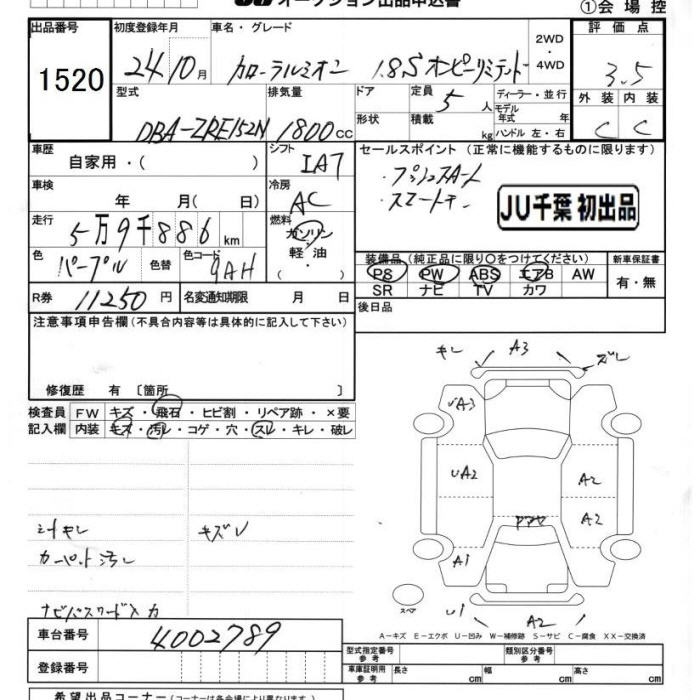 オークション出品申込書
①会場控
出品番号 初度登録年月 車名・グレード 2WD・4WD 評価点
1520 24 10月 カローラルミオン 1.8S 3.5
型式 排気量 ドア 定員 5人 ディーラー・並行 外装 内装
モデル年式 年
DBA-ZRE152N 1800cc 形状 積載 kg ハンドル 左・右 C C
車歴 シフト セールスポイント (正常に機能するものに限ります)
自家用・( ) IA7 ・プッシュスタート
車検 冷房 ・スマートキー
年 月( 日) AC JU千葉 初出品
走行 燃料
5万9千886km ガソリン・軽油
色 色替 色コード 装備品(純正品に限り○をつけてください) 新車保証書
パープル 9AH PS PW ABS エアB AW 有・無
SR ナビ TV カワ
R券 11250円 名変通知期限 月 日 後日品
注意事項申告欄(不具合内容等は具体的に記入して下さい)
修復歴 有 〔箇所 〕
キレ A3 ズレ
検査員 FW キズ・飛石・ヒビ割・リペア跡・×要
記入欄 内装 キズ・汚レ・コゲ・穴・スレ・キレ・破レ
UA3
UA2 A2
A2
A1
シートキレ キズレ
カーペット汚レ
ナビパスワード入力
スペア
U1 A2
車台番号 4002789
A-キズ E-エクボ U-凹み W-補修跡 S-サビ C-腐食 XX-交換済
登録番号
型式指定番号 参考 類別区分番号 参考
車庫証明用 参考 長さ cm 幅 cm 高さ cm
希望出品コーナー(コーナーは各会場により異なります)